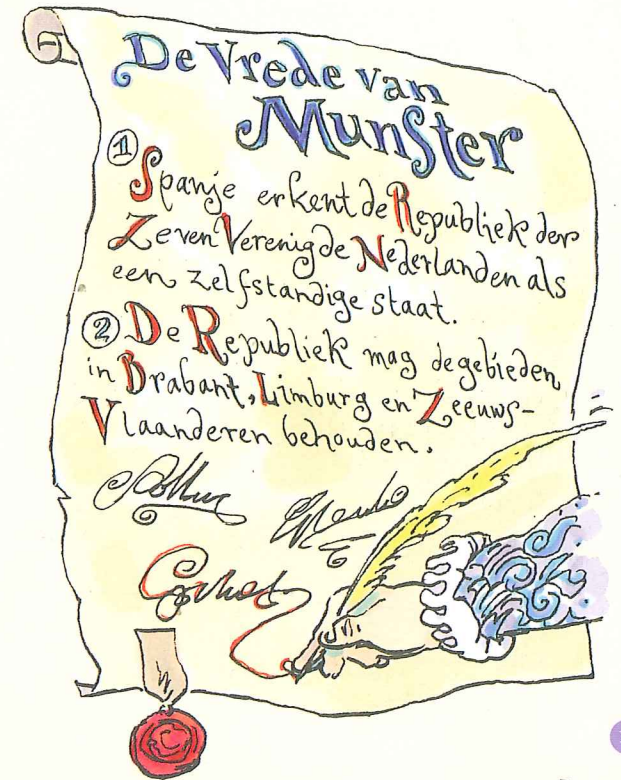 De Vrede van
Munster
1 Spanje erkent de Republiek der
Zeven Verenigde Nederlanden als
een zelfstandige staat.
2 De Republiek mag de gebieden
in Brabant, Limburg en Zeeuws-
Vlaanderen behouden.